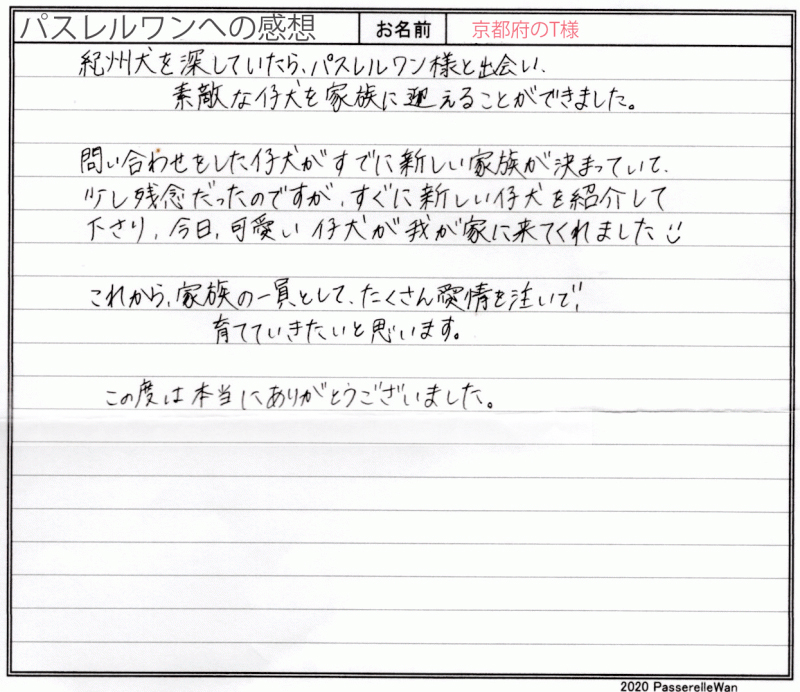 パスレルワンへの感想 お名前 京都府のT様
紀州犬を深していたら、パスレルワン様と出会い、
素敵な仔犬を家族に迎えることができました。
問い合わせをした仔犬がすでに新しい家族が決まっていて、
少し残念だったのですが、すぐに新しい仔犬を紹介して
下さり、今日、可愛い仔犬が我が家に来てくれました
これから、家族の一員として、たくさん愛情を注いで、
育てていきたいと思います。
この度は本当にありがとうございました。
2020 PasserelleWan